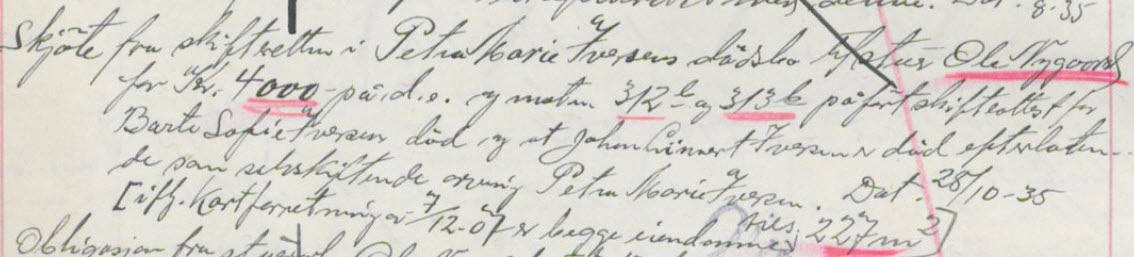 denne. Dat. 8-35
Skjöte fra skifteretten i Petra Marie Iversens dødsbo til Ole Nygaard
for Kr. 4000 på d.e. og matr. 312b og 313b påført skifteattest for
Berte Sofie Iversen död og at Johan Linnert Iversen er död efterlaten-
de som selvskiftende arving Petra Marie Iversen. Dat. 28/10-35
[ifg. Kartforretning av 7/12-07 er begge eiendommes tils. 227 m²]
Obligasjon fra